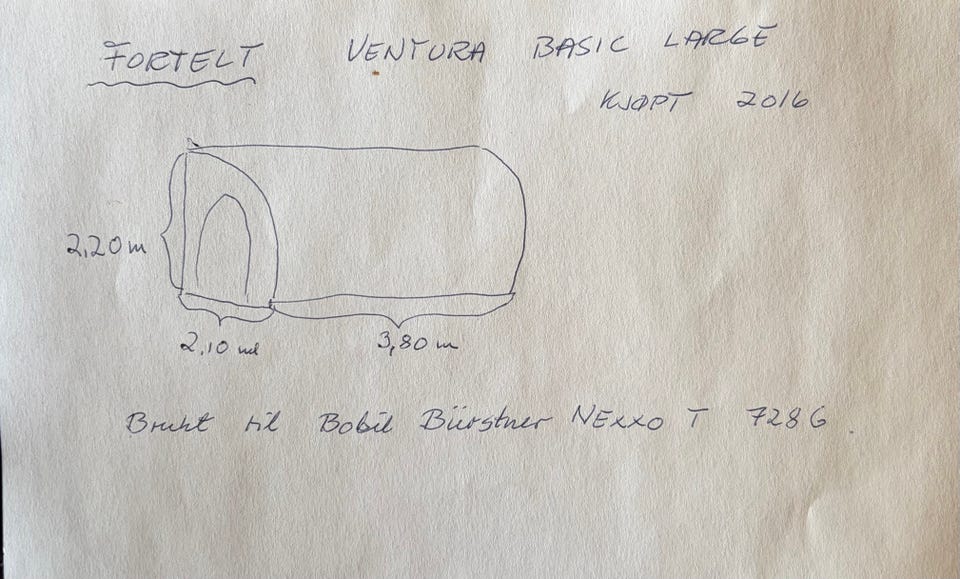 FORTELT VENTURA BASIC LARGE
KJØPT 2016
2,20 m
2,10 m
3,80 m
Brukt til Bobil Bürstner NEXXO T 728 G.